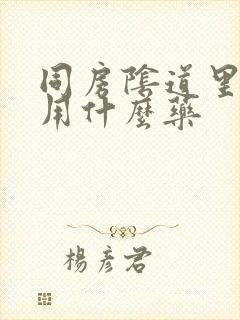 同房陰道里
用什麼藥
楊彥君